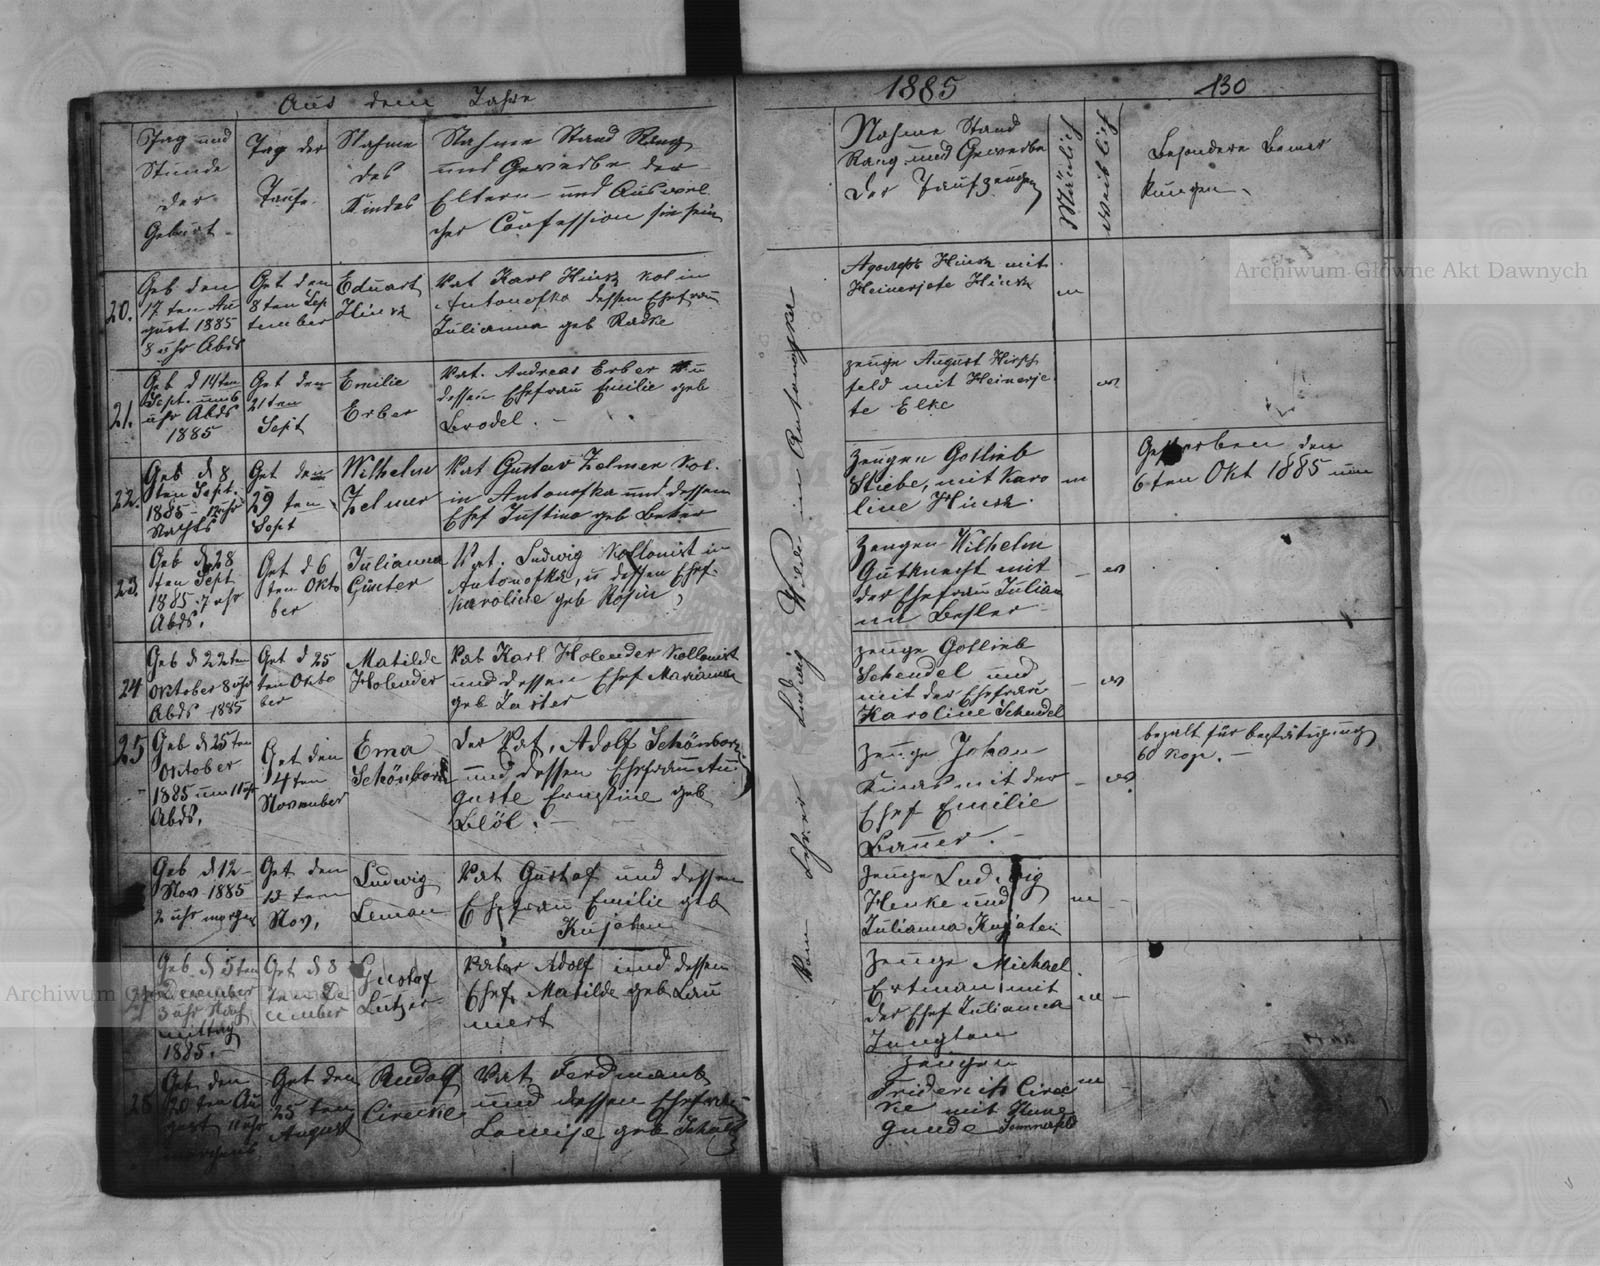 Aus dem Jahre
1885
130
Tag und
Stunde
der
Geburt
Tag der
Taufe
Nahme
des
Kindes
Nahme Stand Rang
und Gewerbe der
Eltern und Auswel
cher Confession sie sein
Nahme Stand
Rang und Gewerbe
der Taufzeugen
Mänlich
Weiblich
Besondere Bemer
kungen
20.
Geb den
17 ten Au
gust 1885
8 uhr Abds
Get den
8 ten Sep
tember
Eduart
Hinz
Vat Karl Hinz Kol in
Antonofka dessen Ehefrau
Julianna geb Radke
Heinerjete Hinz
m
21.
Geb d 14 ten
Sept. um 6
uhr Abds
1885
Get den
21 ten
Sept
Emilie
Erber
Vat. Andreas Erber
dessen Ehefrau Emilie geb
Zeuge August Hirsch
feld mit Heinerje
te Elke
w
22.
Geb d 8
ten Sept.
1885 12 uhr
Nachts
Get den
29 ten
Sept
Wilhelm
Zelmer
Vat Gustav Zelmer Kol.
in Antonofka und dessen
Ehef Justine geb Beker
Zeugen Gotlieb
Stiebe, mit Karo
line Hinz.
m
Gestorben den
6 ten Okt 1885
23.
Geb d 28
ten Sept
1885 7 uhr
Abds.
Get d 6
ten Okto
ber
Julianna
Günter
Vat. Ludwig Kollonist in
Antonofka, u dessen Ehef.
Karoline geb Rosin
Zeugen Wilhelm
Gutknecht mit
der Ehefrau Julian
na Besler
w
24
Geb d 22 ten
Oktober 8 uhr
Abds 1885
Get d 25
ten Okto
ber
Matilde
Holender
Vat Karl Holender Kollonist
und dessen Ehef Marianna
geb
Zeuge Gotlieb
Schendel und
mit der Ehefrau
Karoline Schendel
w
25
Geb d 25 ten
Oktober
1885 um 11 uhr
Abds.
Get den
14 ten
November
Ema
Schönborn
Der Vat, Adolf Schönborn
und dessen Ehefrau Au
guste Ernstine geb
Zeuge Johan
mit der
Ehef Emilie
Bauer.
w
bezalt für bestätigung
60 Kope.
Geb d 12
Nov 1885
2 uhr morgens
Get den
Nov.
Ludwig
Leman
Vat Gustaf und dessen
Ehefrau Emilie geb
Kujaten
Zeuge Ludwig
Henke und
Julianna Kujaten
m
Geb. d 5 ten
Dezember
3 uhr Nach
mittag
1885.
Get d 8
ten De
cember
Gustaf
Lutzer
Vater Adolf und dessen
Ehef. Matilde geb Lau
mert
Zeuge Michael
Ertman mit
der Ehef Julianna
Jungton
m
28
Geb. den
20 ten Au
gust 11 uhr
morgens
Get den
25 ten
August
Rudolf
Vat Ferdinant
und dessen Ehefrau
Lowise geb Schulz
Zeugen
Friderich
mit Kune
gunde Sommerfeld
m
Vom Lehrer Ludwig Wilde in Antonofka
Archiwum Główne Akt Dawnych